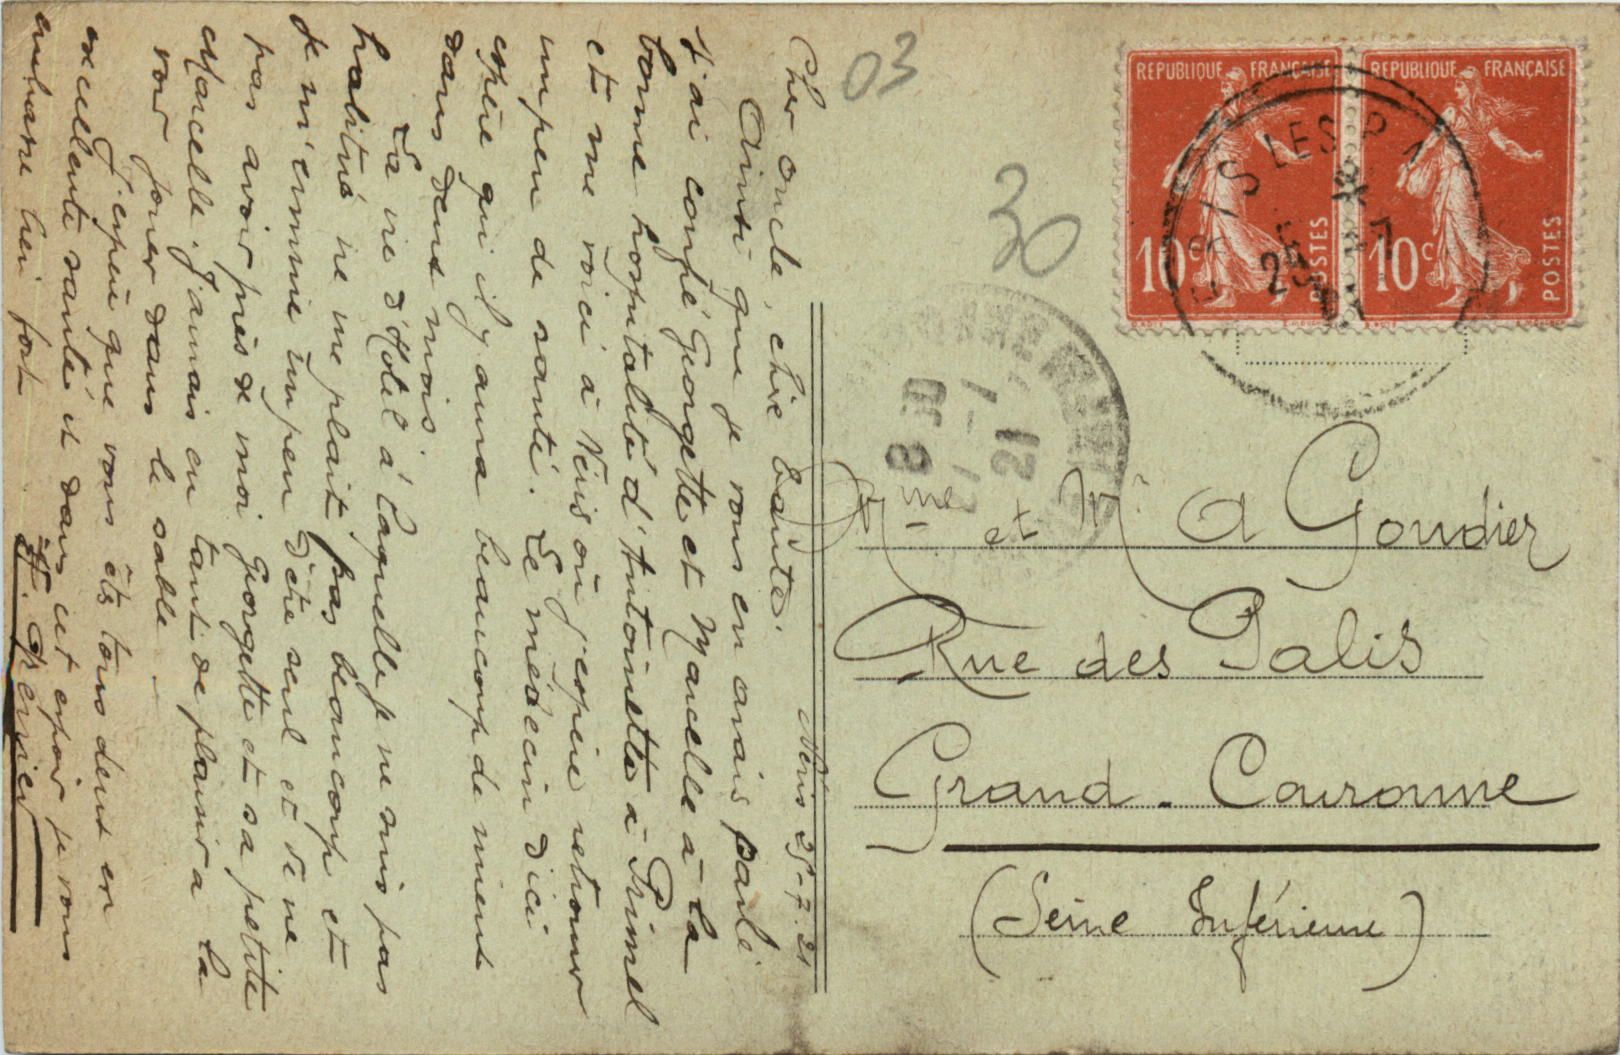 Néris 25-7-21
Cher oncle, chère tante.
Ainsi que je vous en avais parlé
j'ai confié Georgette et Marcelle à la
bonne hospitalité d'Antoinette à Primel
et me voici à Néris où j'espère retrouver
un peu de santé. Le médecin d'ici
espère qu'il y aura beaucoup de mieux
dans deux mois.
La vie d'Hôtel à laquelle je ne suis pas
habitué ne me plait pas beaucoup et
je m'ennuie un peu d'être seul et de ne
pas avoir près de moi Georgette et sa petite
Marcelle. Jamais eu tant de plaisir a la
voir jouer dans le sable.
J'espère que vous êtes tous deux en
excellente santé et dans cet espoir je vous
embrasse bien fort
03
30
REPUBLIQUE FRANÇAISE
10c
POSTES
REPUBLIQUE FRANÇAISE
10c
POSTES
LES
25 -7
8
-7
21
Mme et Mr A Goudier
Rue des Palis
Grand-Couronne
(Seine Inférieure)